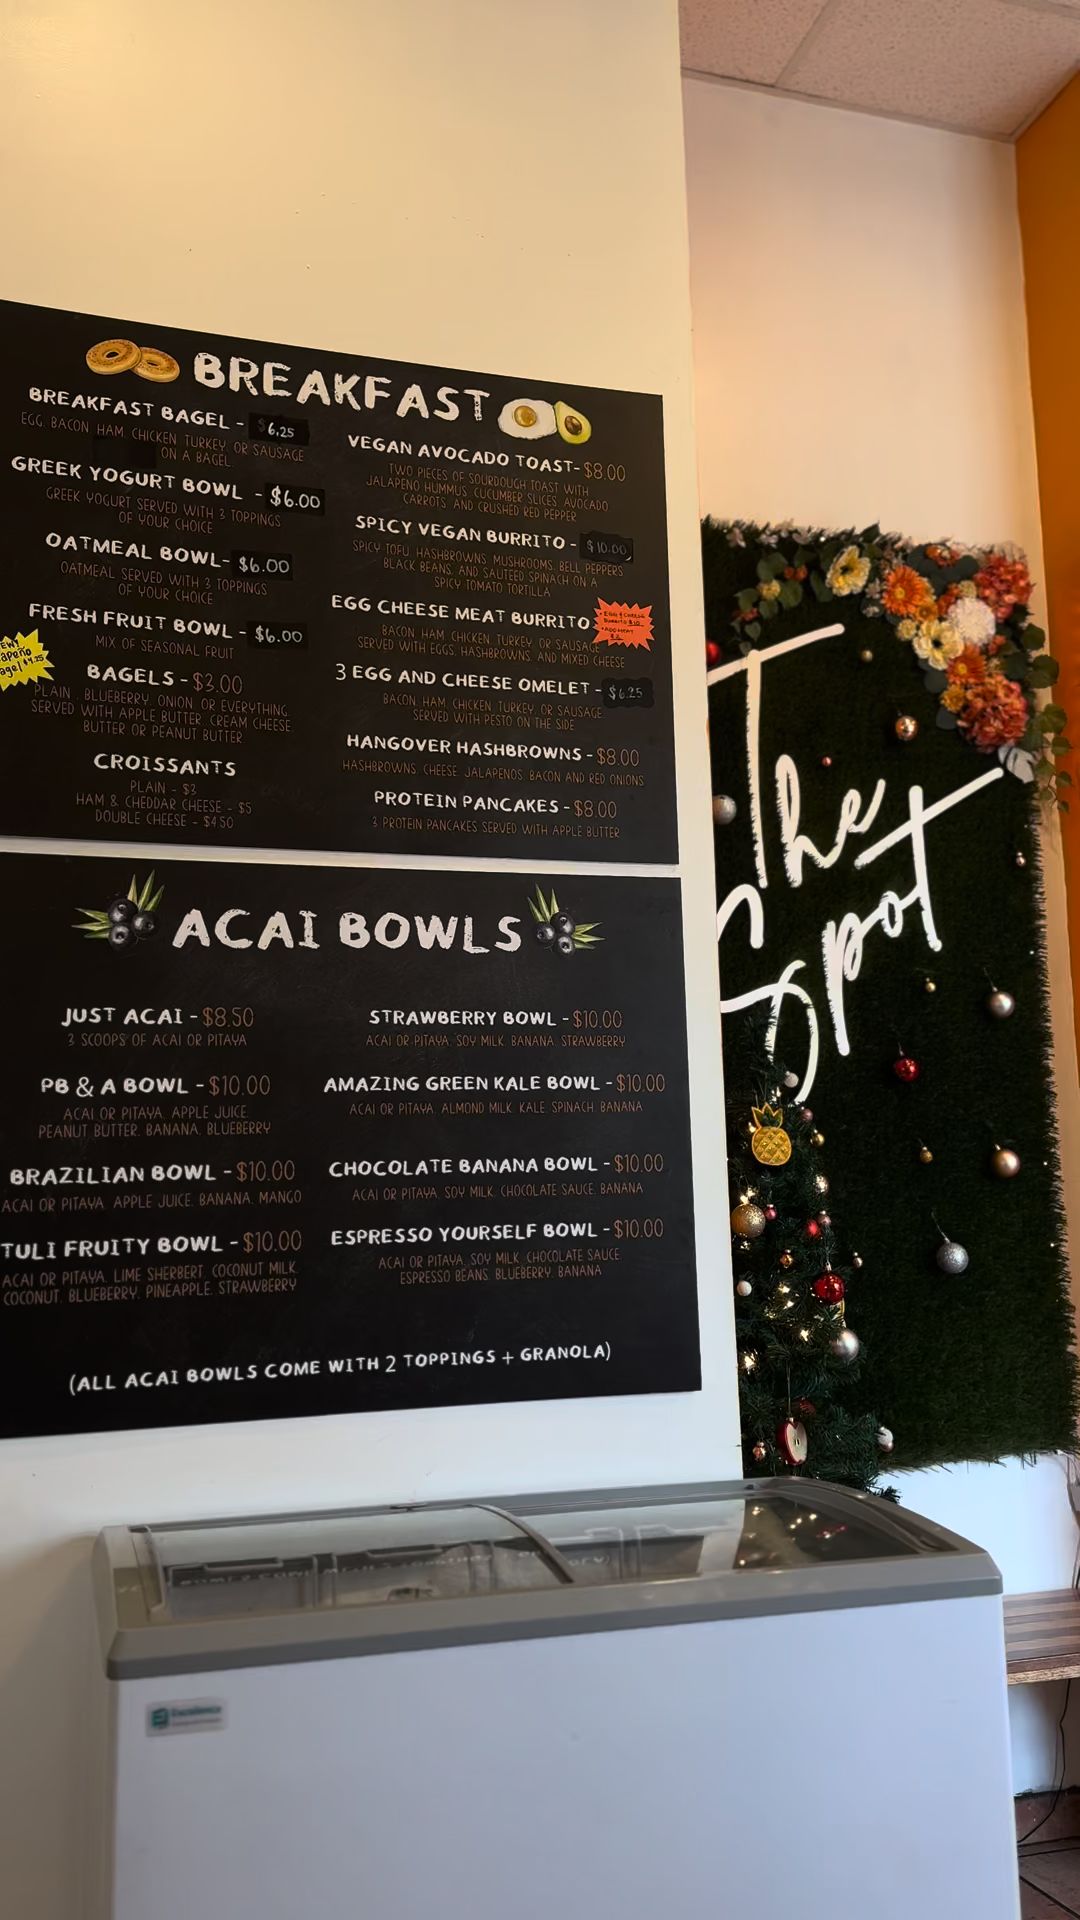 BREAKFAST
BREAKFAST BAGEL - $6.25
EGG, BACON, HAM, CHICKEN, TURKEY, OR SAUSAGE
ON A BAGEL.
GREEK YOGURT BOWL - $6.00
GREEK YOGURT SERVED WITH 3 TOPPINGS
OF YOUR CHOICE
OATMEAL BOWL- $6.00
OATMEAL SERVED WITH 3 TOPPINGS
OF YOUR CHOICE
FRESH FRUIT BOWL - $6.00
MIX OF SEASONAL FRUIT
$4.25
BAGELS - $3.00
PLAIN, BLUEBERRY, ONION, OR EVERYTHING.
SERVED WITH APPLE BUTTER, CREAM CHEESE
BUTTER OR PEANUT BUTTER
CROISSANTS
PLAIN - $3
HAM & CHEDDAR CHEESE - $5
DOUBLE CHEESE - $4.50
VEGAN AVOCADO TOAST- $8.00
TWO PIECES OF SOURDOUGH TOAST WITH
JALAPENO HUMMUS, CUCUMBER SLICES, AVOCADO
CARROTS, AND CRUSHED RED PEPPER
SPICY VEGAN BURRITO - $10.00
SPICY TOFU, HASHBROWNS, MUSHROOMS, BELL PEPPERS
BLACK BEANS, AND SAUTEED SPINACH ON A
SPICY TOMATO TORTILLA
EGG CHEESE MEAT BURRITO
• EGG & CHEESE
BURRITO $10
• ADD MEAT
$2
BACON, HAM, CHICKEN, TURKEY, OR SAUSAGE
SERVED WITH EGGS, HASHBROWNS, AND MIXED CHEESE
3 EGG AND CHEESE OMELET - $6.25
BACON, HAM, CHICKEN, TURKEY, OR SAUSAGE
SERVED WITH PESTO ON THE SIDE
HANGOVER HASHBROWNS - $8.00
HASHBROWNS, CHEESE, JALAPENOS, BACON AND RED ONIONS
PROTEIN PANCAKES - $8.00
3 PROTEIN PANCAKES SERVED WITH APPLE BUTTER
ACAI BOWLS
JUST ACAI - $8.50
3 SCOOPS OF ACAI OR PITAYA
PB & A BOWL - $10.00
ACAI OR PITAYA, APPLE JUICE,
PEANUT BUTTER, BANANA, BLUEBERRY
BRAZILIAN BOWL - $10.00
ACAI OR PITAYA, APPLE JUICE, BANANA, MANGO
TULI FRUITY BOWL - $10.00
ACAI OR PITAYA, LIME SHERBERT, COCONUT MILK,
COCONUT, BLUEBERRY, PINEAPPLE, STRAWBERRY
STRAWBERRY BOWL - $10.00
ACAI OR PITAYA, SOY MILK, BANANA, STRAWBERRY
AMAZING GREEN KALE BOWL - $10.00
ACAI OR PITAYA, ALMOND MILK, KALE, SPINACH, BANANA
CHOCOLATE BANANA BOWL - $10.00
ACAI OR PITAYA, SOY MILK, CHOCOLATE SAUCE, BANANA
ESPRESSO YOURSELF BOWL - $10.00
ACAI OR PITAYA, SOY MILK, CHOCOLATE SAUCE
ESPRESSO BEANS, BLUEBERRY, BANANA
(ALL ACAI BOWLS COME WITH 2 TOPPINGS + GRANOLA)
The
Spot
Excellence